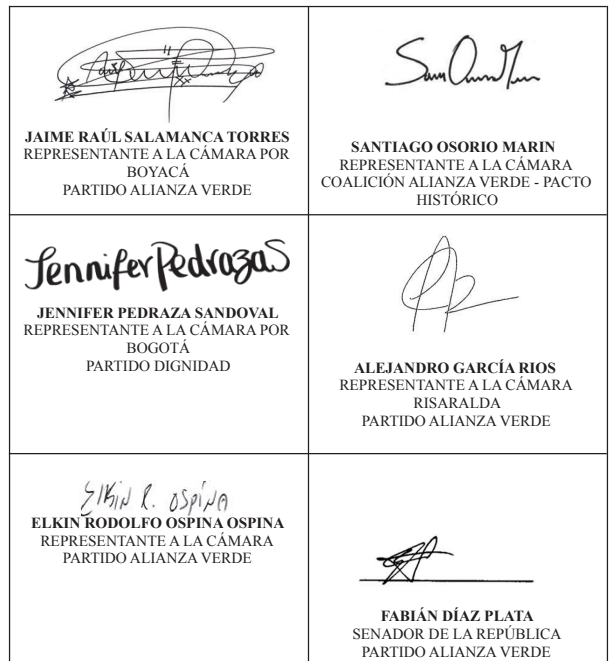 JAIME RAÚL SALAMANCA TORRES
REPRESENTANTE A LA CÁMARA POR
BOYACÁ
PARTIDO ALIANZA VERDE
SANTIAGO OSORIO MARIN
REPRESENTANTE A LA CÁMARA
COALICIÓN ALIANZA VERDE - PACTO
HISTÓRICO
Jennifer Pedraza S
JENNIFER PEDRAZA SANDOVAL
REPRESENTANTE A LA CÁMARA POR
BOGOTÁ
PARTIDO DIGNIDAD
ALEJANDRO GARCÍA RIOS
REPRESENTANTE A LA CÁMARA
RISARALDA
PARTIDO ALIANZA VERDE
ElkiN R. OSpiNA
ELKIN RODOLFO OSPINA OSPINA
REPRESENTANTE A LA CÁMARA
PARTIDO ALIANZA VERDE
FABIÁN DÍAZ PLATA
SENADOR DE LA REPÚBLICA
PARTIDO ALIANZA VERDE